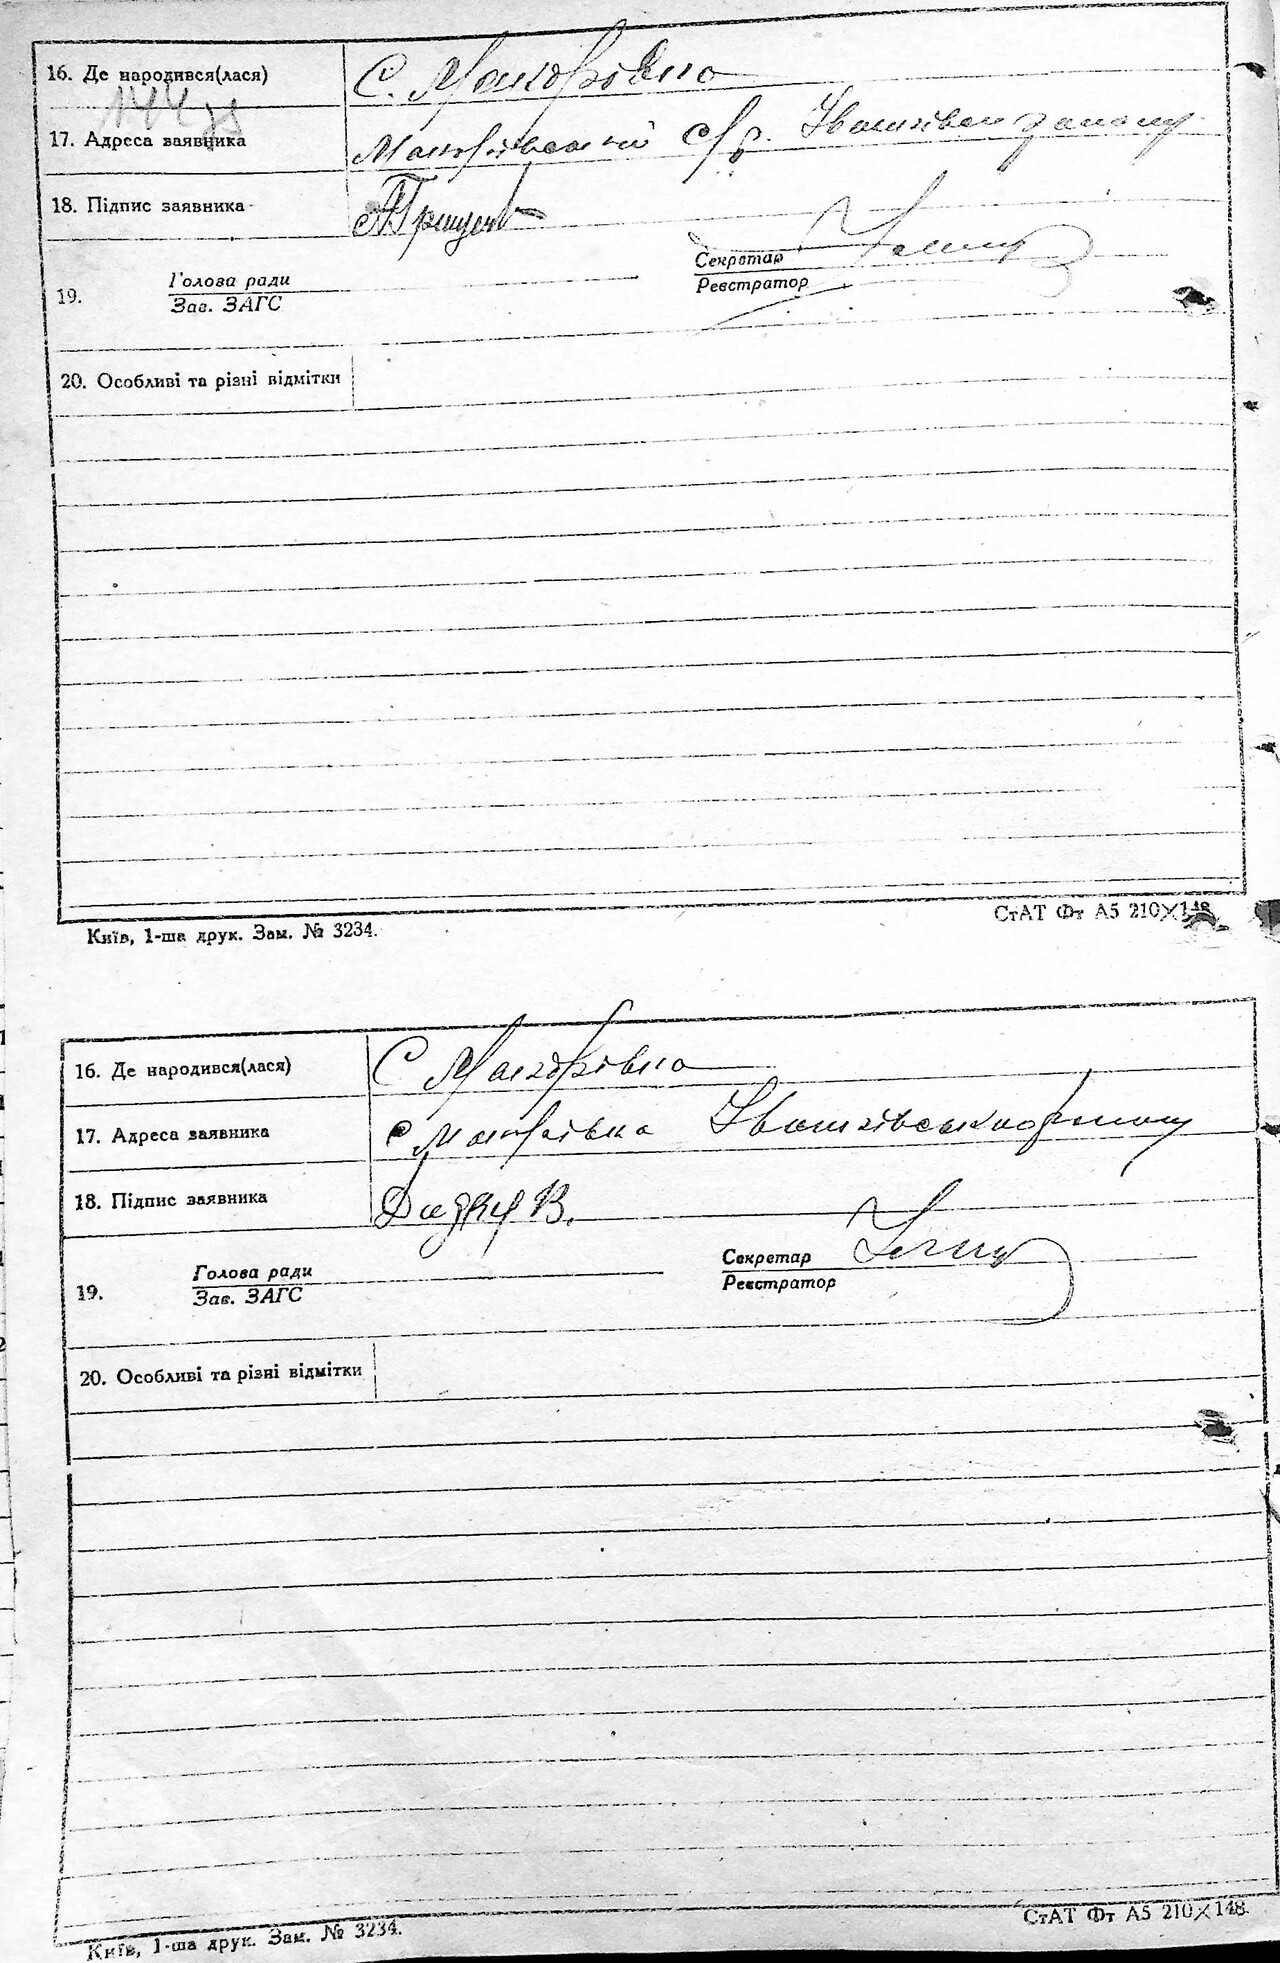 16. Де народився(лася) С. Макарівка
144 зв
17. Адреса заявника с/р.
18. Підпис заявника
19. Голова ради Секретар
Зав. ЗАГС Реєстратор
20. Особливі та різні відмітки
Київ, 1-ша друк. Зам. № 3234. СтАТ Фт А5 210×148
16. Де народився(лася) С Макарівка
17. Адреса заявника с Макарівка
18. Підпис заявника В.
19. Голова ради Секретар
Зав. ЗАГС Реєстратор
20. Особливі та різні відмітки
Київ, 1-ша друк. Зам. № 3234. СтАТ Фт А5 210×148